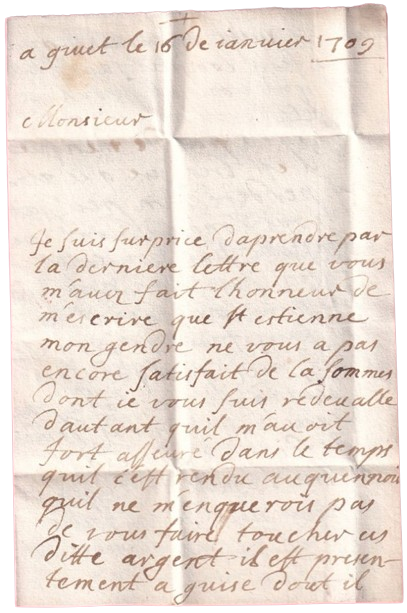 a givet le 16 de ianvier 1709
Monsieur
Je suis surprice daprendre par
la derniere lettre que vous
m'avez fait lhonneur de
m'escrire que St estienne
mon gendre ne vous a pas
encore satisfait de la sommes
dont ie vous suis redevalle
dautant quil m'avoit
fort asseuré dans le temps
quil c'est rendu au quennoi
quil ne m'enquerois pas
de vous faire toucher
ditte argent il est presen-
tement a guise dout il